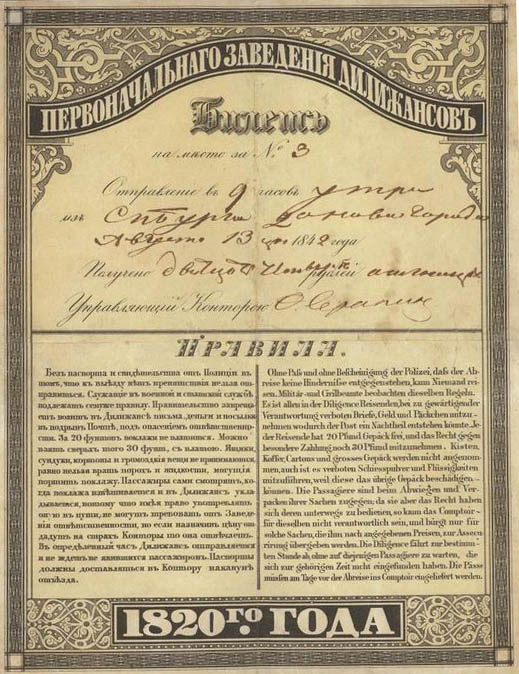 ПЕРВОНАЧАЛЬНАГО ЗАВЕДЕНІЯ ДИЛИЖАНСОВЪ
Билетъ
на мѣсто за № 3
Отправленіе въ 9 часовъ утра
изъ
Августа 13 1842 года
Получено рублей
Управляющій Конторою
ПРАВИЛА.
Безъ паспорта и свидѣтельства отъ Полиціи въ
томъ, что къ выѣзду нѣтъ препятствія нельзя отправиться. Служащіе въ военной и статской службѣ
подлежатъ сему же правилу. Правительство запрещаетъ возить въ Дилижансѣ письма, деньги и посылки
въ подрывъ Почтѣ, подъ опасеніемъ отвѣтственности. За 20 фунтовъ поклажи не платится. Можно
взять сверхъ того 30 фунт. съ платою. Ящики,
сундуки, картоны и громоздкія вещи не принимаются,
равно нельзя брать порохъ и жидкости, могущія
портить поклажу. Пассажиры сами смотрятъ, когда поклажа взвѣшивается и въ Дилижансъ укладывается, потому что имѣя право употреблять
оную въ пути, не могутъ требовать отъ Заведенія отвѣтственности, но если назначатъ цѣну отдадутъ на страхъ Конторы то она отвѣчаетъ.
Въ опредѣленный часъ Дилижансъ отправляется
и не ждетъ не явившихся пассажировъ. Паспорты
должны доставляться въ Контору наканунѣ
отъѣзда.
Ohne Paß und ohne Bescheinigung der Polizei, daß der Abreise keine Hindernisse entgegenstehen, kann Niemand reisen. Militär und Civilbeamte beobachten dieselben Regeln.
Es ist allen in der Diligence Reisenden, bei zu gewärtigender
Verantwortung verboten Briefe, Geld und Päckchen mitzunehmen wodurch der Post ein Nachtheil entstehen könnte. Jeder Reisende hat 20 Pfund Gepäck frei, und das Recht gegen
besondere Zahlung noch 30 Pfund mitzunehmen. Kisten,
Koffer, Cartons und grosses Gepäck werden nicht angenommen, auch ist es verboten Schiesspulver und Flüssigkeiten
mitzuführen, weil diese das übrige Gepäck beschädigen
können. Die Passagiere sind beim Abwiegen und Verpacken ihrer Sachen zugegen; da sie aber das Recht haben
sich deren unterwegs zu bedienen, so kann das Comptoir
für dieselben nicht verantwortlich sein, und bürgt nur für
solche Sachen, die ihm nach angegebenen Preisen, zur Assecurirung übergeben werden. Die Diligence fährt zur bestimmten Stunde ab, ohne auf diejenigen Passagiere zu warten, die
sich zur gehörigen Zeit nicht eingefunden haben. Die Pässe
müssen am Tage vor der Abreise ins Comptoir eingeliefert werden.
1820ГО. ГОДА